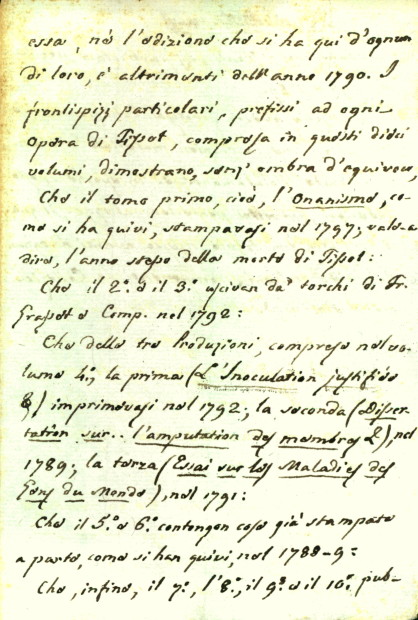 essa, nè l'edizione che si ha qui d'ognun
di loro, è altrimenti dell'anno 1790. I
frontispizj particolari, prefissi ad ogni
Opera di Tissot, compresa in questi dieci
volumi, dimostrano, senz' ombra d'equivoco,
Che il tomo primo, cioè, l'Onanismo, co-
me si ha quivi, stampavasi nel 1797; vale-a
dire, l'anno stesso della morte di Tissot:
Che il 2.° e il 3.° uscivan da' torchi di Fr.
Grasset e Comp. nel 1792:
Che delle tre Produzioni, comprese nel vo-
lume 4.°, la prima (L'Inoculation justifiée
&) imprimevasi nel 1792; la seconda (Disser
tation sur.. l'amputation des membres &), nel
1789; la terza (Essai sur les Maladies des
Gens du Monde), nel 1791:
Che il 5.° e 6.° contengon cose già stampate
a parte, come si han quivi, nel 1788-9:
Che, infine, il 7.°, l'8.°, il 9.° e il 10.° pub-